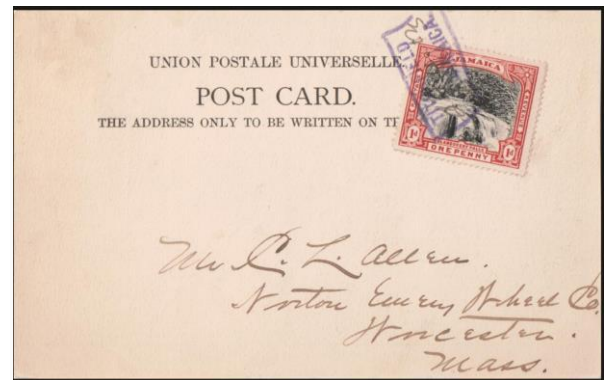 UNION POSTALE UNIVERSELLE.
POST CARD.
THE ADDRESS ONLY TO BE WRITTEN ON TH
JAMAICA
1d ONE PENNY 1d
Mr C. L. Allen.
Norton Emery Wheel Co.
Worcester.
Mass.